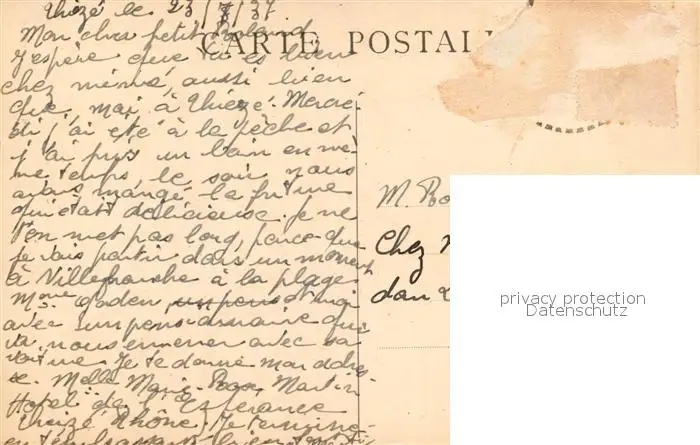 Thizé le 23/7/37
CARTE POSTAL
Mon cher petit Roland,
J'espère que tu es bien
chez mémé, aussi bien
que, moi à Thizé. Mercre-
di j'ai été à la pêche et
j'ai pris un bain en mê-
me temps, le soir, nous
avons mangé la friture
qui était délicieuse. je ne
t'en met pas long, parce que
je vais partir dans un moment
à Villefranche à la plage.
Mme et moi
avec un pensionnaire qui
va nous emmener avec sa
voiture. Je te donne mon adres-
se. Melle Marie-Rose Martin
Hotel de l'Esperance
Rhône. Je termine
en t'embrassant bien
M. Ro
Chez
dan
privacy protection
Datenschutz